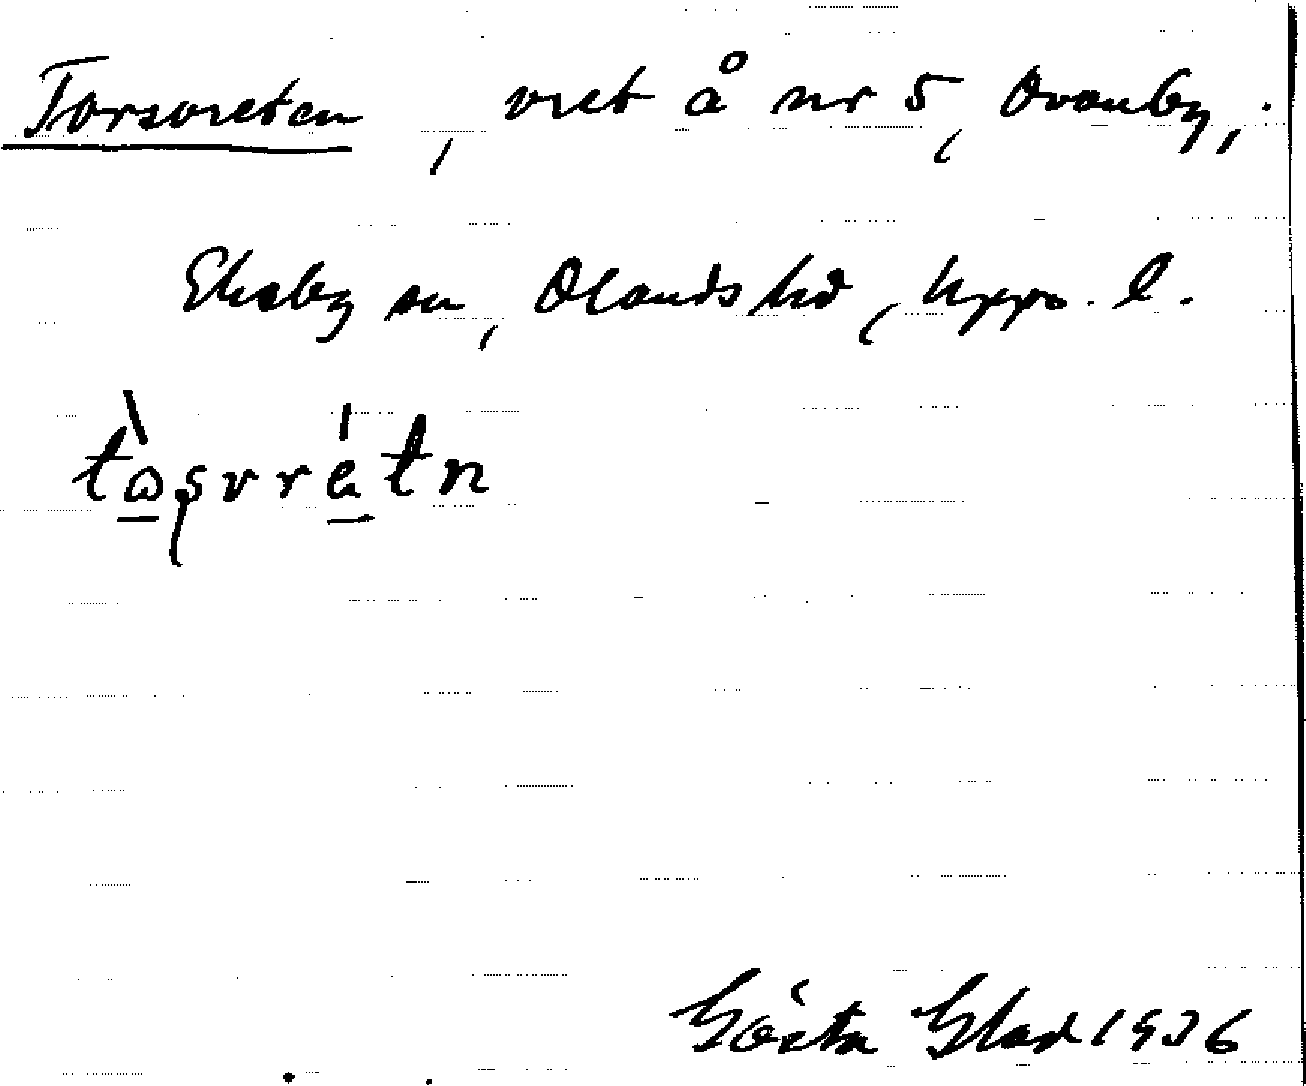 Torsvreten, vret å nr 5, Ovanby,
Ekeby sn, Olands hd, Upps. l.
Gösta Glad 1936